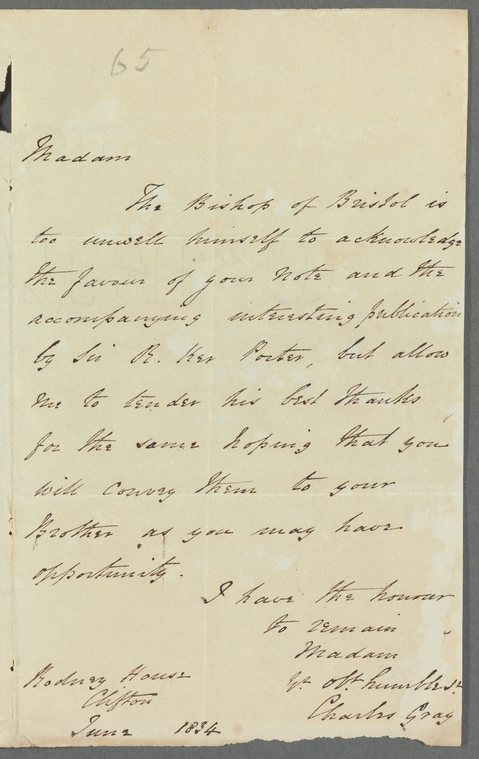 65
Madam
The Bishop of Bristol is
too unwell himself to acknowledge
the favour of your note and the
accompanying interesting publication
by Sir R. Ker Porter, but allow
me to tender his best thanks
for the same hoping that you
will convey them to your
Brother as you may have
opportunity.
I have the honour
to remain
Madam
Yr. obt. humble St.
Charles Gray
Rodney House
Clifton
June 1834